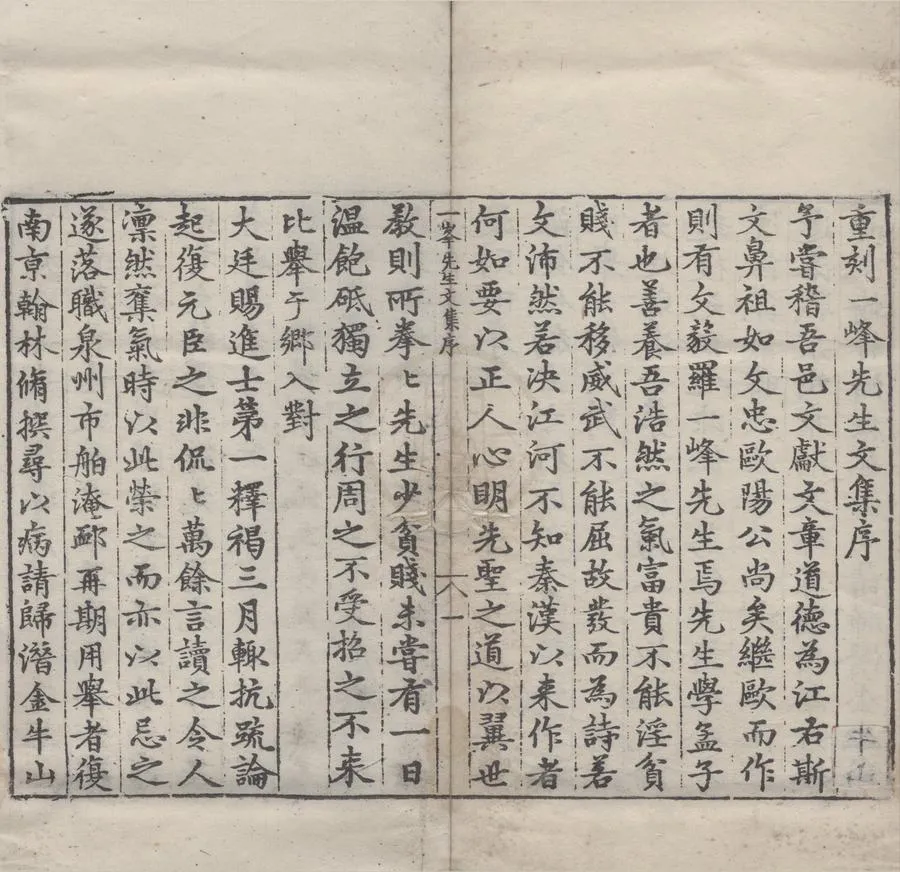 重刻一峰先生文集序
予嘗稽吾邑文獻文章道德為江右斯
文鼻祖如文忠歐陽公尚矣繼歐而作
則有文毅羅一峰先生焉先生學孟子
者也善養吾浩然之氣富貴不能淫貧
賤不能移威武不能屈故發而為詩若
文沛然若决江河不知秦漢以来作者
何如要以正人心明先聖之道以翼世
一峯先生文集序
六一
教則所拳〻先生少貧賤未嘗有一日
温飽砥獨立之行周之不受招之不来
比舉于鄉入對
大廷賜進士第一釋褐三月輙抗䟽論
起復元臣之非侃〻萬餘言讀之令人
凛然奪氣時以此榮之而亦以此忌之
遂落職泉州市舶淹邸再期用舉者復
南京翰林脩撰尋以病請歸潛金牛山